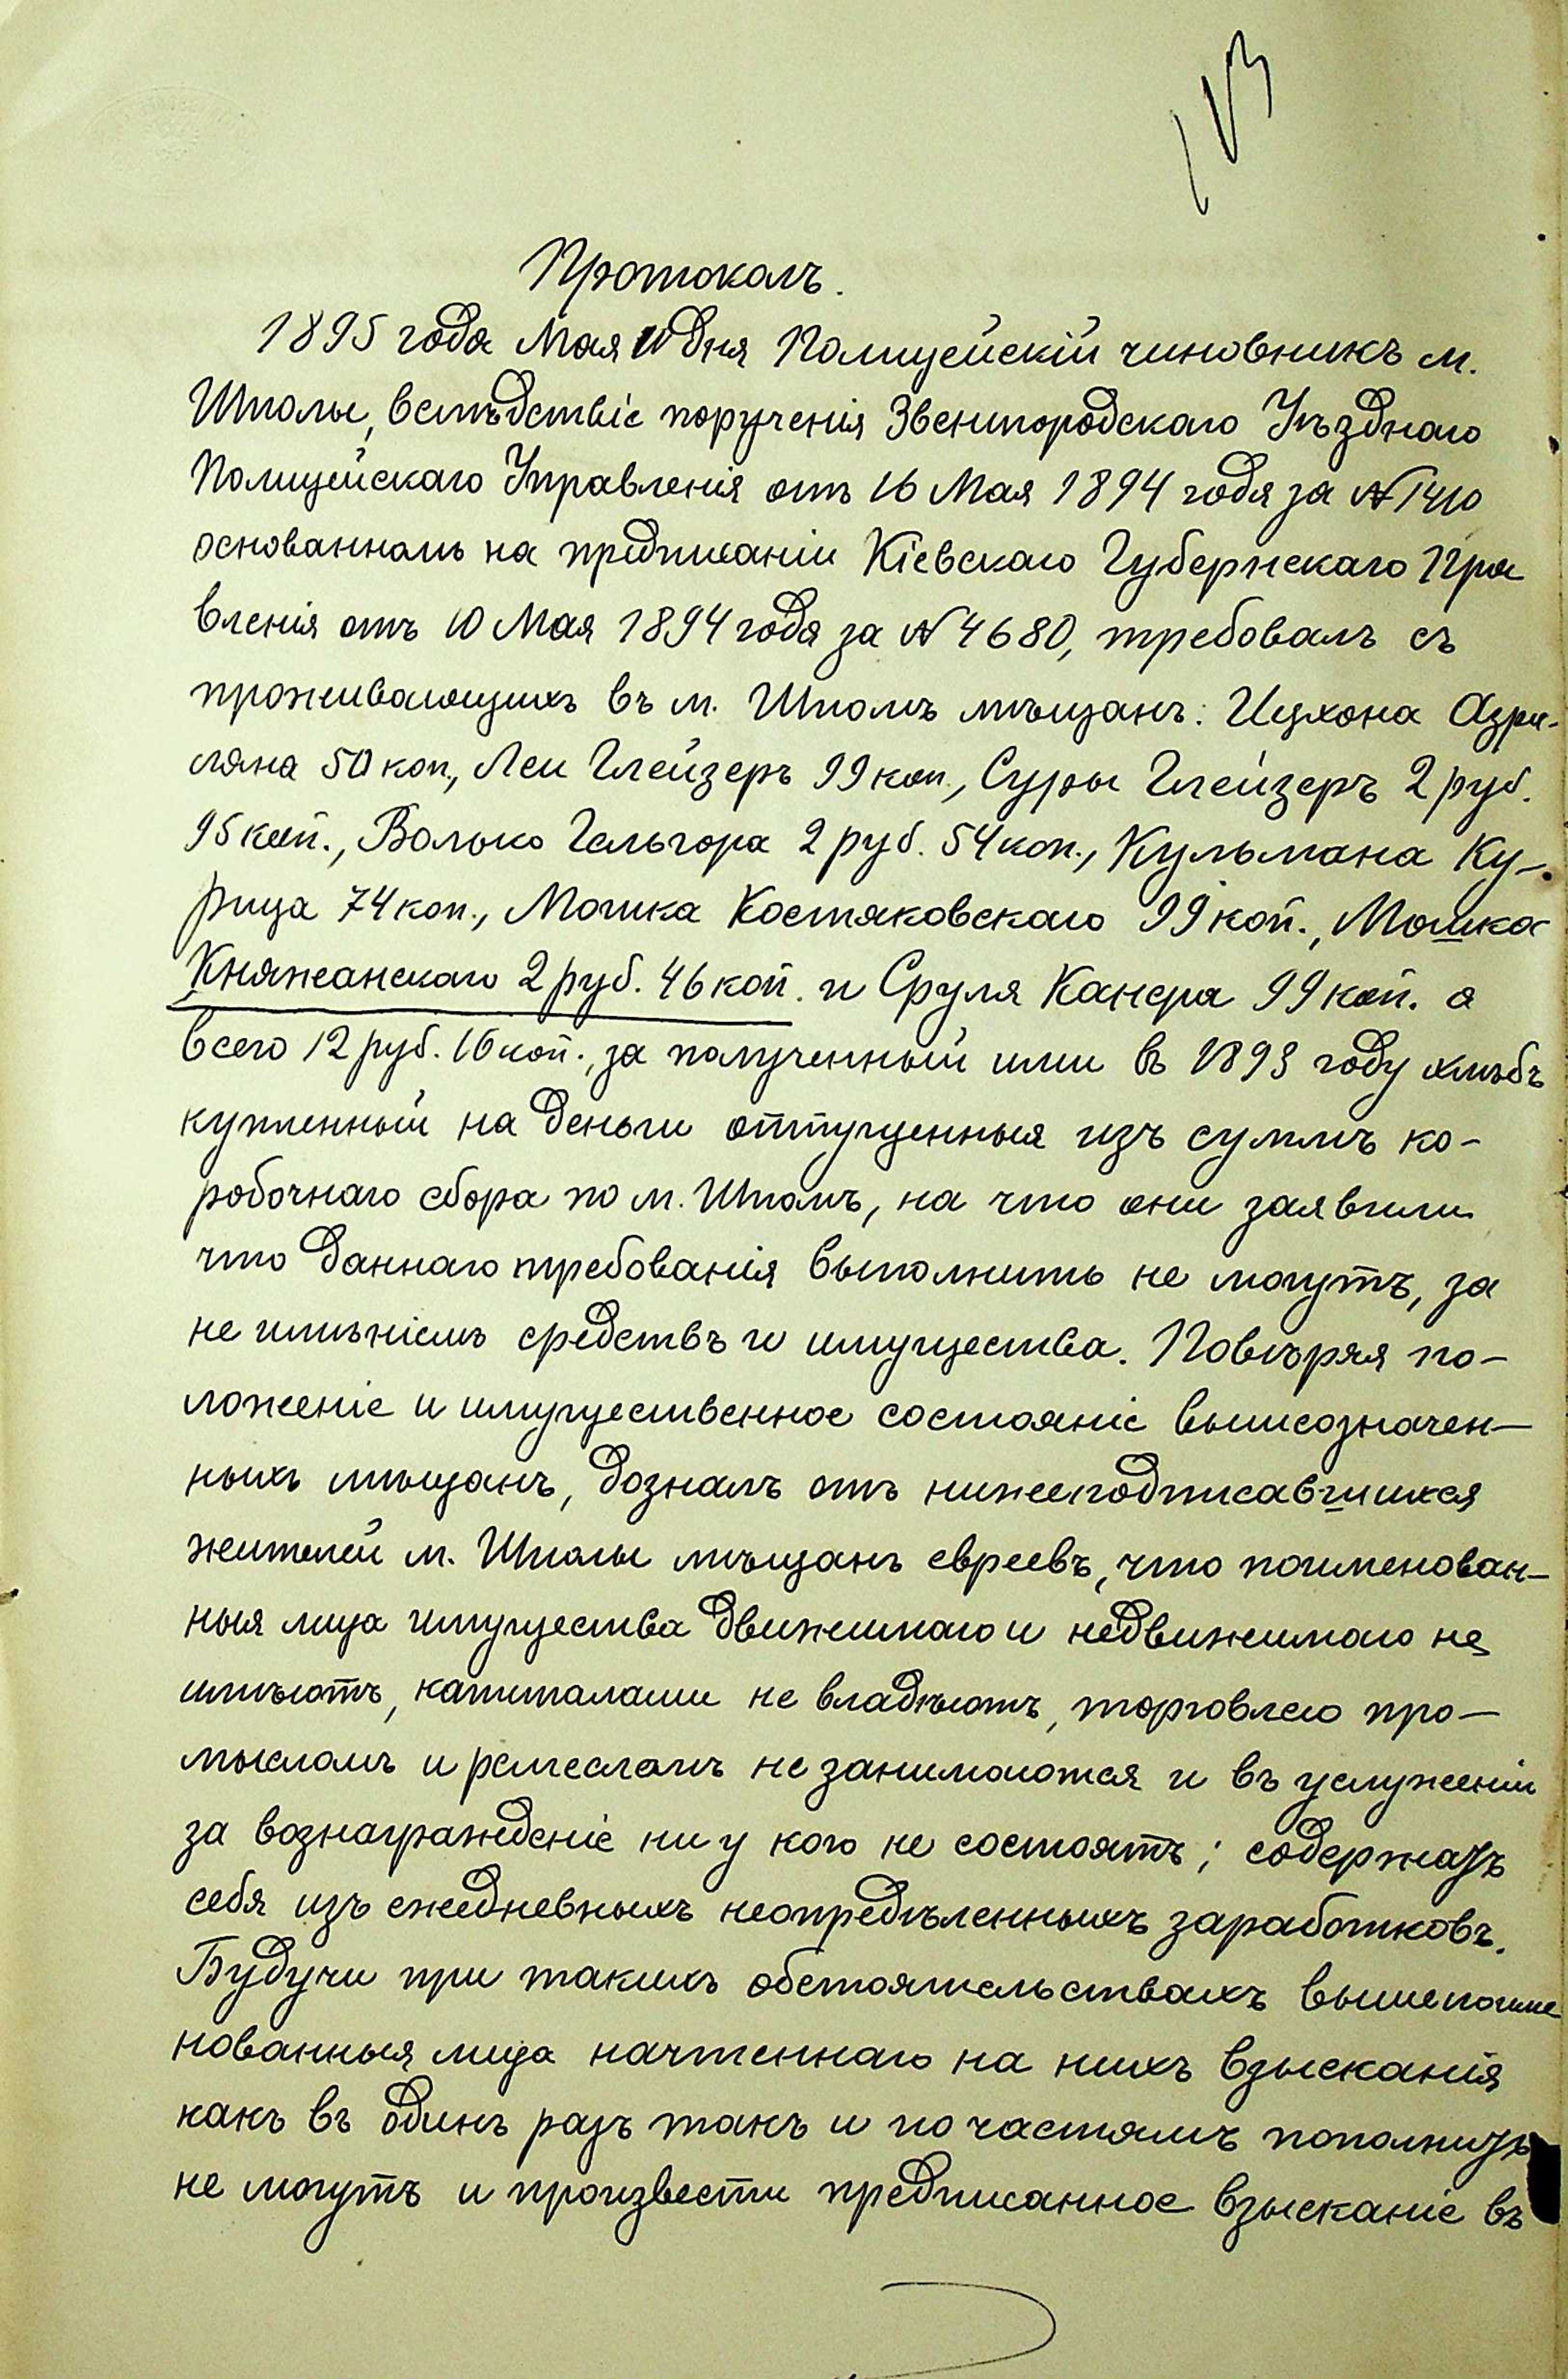 113
Протоколъ.
1895 года Мая 11 дня Полицейскій чиновникъ м.
Шполы, вслѣдствіе порученія Звенигородскаго Уѣзднаго
Полицейскаго Управленія отъ 16 Мая 1894 года за № 1410
основанномъ на предписаніи Кіевскаго Губернскаго Пра
вленія отъ 10 Мая 1894 года за № 4680, требовалъ съ
проживающихъ въ м. Шполѣ мѣщанъ: Ицхона Азри-
ляна 50 коп., Леи Глейзеръ 99 коп., Суры Глейзеръ 2 руб.
95 коп., Волько Гельгора 2 руб. 54 коп., Кульмана Ку-
рица 74 коп., Мошка Костяковскаго 99 коп., Мошка
Княжанскаго 2 руб. 46 коп. и Сруля Канера 99 коп. а
всего 12 руб. 16 коп., за полученный ими в 1893 году хлѣбъ
купленный на деньги отпущенныя изъ суммъ ко-
робочнаго сбора по м. Шполѣ, на что они заявили
что даннаго требованія выполнить не могутъ, за
не имѣніемъ средствъ и имущества. Повѣряя по-
ложеніе и имущественное состояніе вышеозначен-
ныхъ мѣщанъ, дозналъ отъ нижеподписавшихся
жителей м. Шполы мѣщанъ евреевъ, что поименован-
ныя лица имущества движимаго и недвижимаго не
имѣютъ, капиталами не владѣютъ, торговлею про-
мысломъ и ремесломъ не занимаются и въ услуженіи
за вознагражденіе ни у кого не состоятъ; содержатъ
себя изъ ежедневныхъ неопредѣленныхъ заработковъ.
Будучи при такихъ обстоятельствахъ вышепоиме
нованныя лица начтеннаго на нихъ взысканія
какъ въ одинъ разъ такъ и по частямъ пополнить
не могутъ и произвести предписанное взысканіе въ